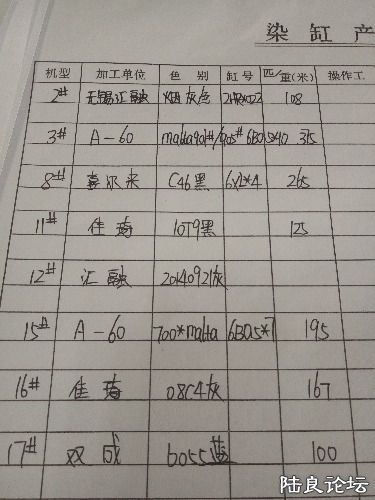 染 缸 产
机型 加工单位 色 别 缸号 匹/重(米) 操作工
2# 无锡汇融 烟灰色 108
3# A-60 malta901#/905# 6B05 315
8# 喜尔来 C46黑 6X2*4 265
11# 佳琦 1079黑 125
12# 汇融 2014092灰
15# A-60 700*malta 6B05*7 195
16# 佳琦 08C4灰 167
17# 双成 6055蓝 100
陆良论坛